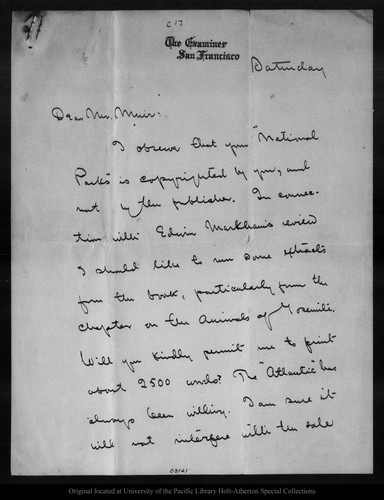 C 17
The Examiner
San Francisco
Saturday
Dear Mr. Muir:
I observe that your "National
Parks" is copyrighted by you, and
not by the publisher. In connec-
tion with Edwin Markham's review
I should like to run some extracts
from the book, particularly from the
chapter on the Animals of Yosemite.
Will you kindly permit me to print
about 2500 words? The "Atlantic" has
always been willing. I am sure it
will not interfere with the sale
03121
Original located at University of the Pacific Library Holt-Atherton Special Collections